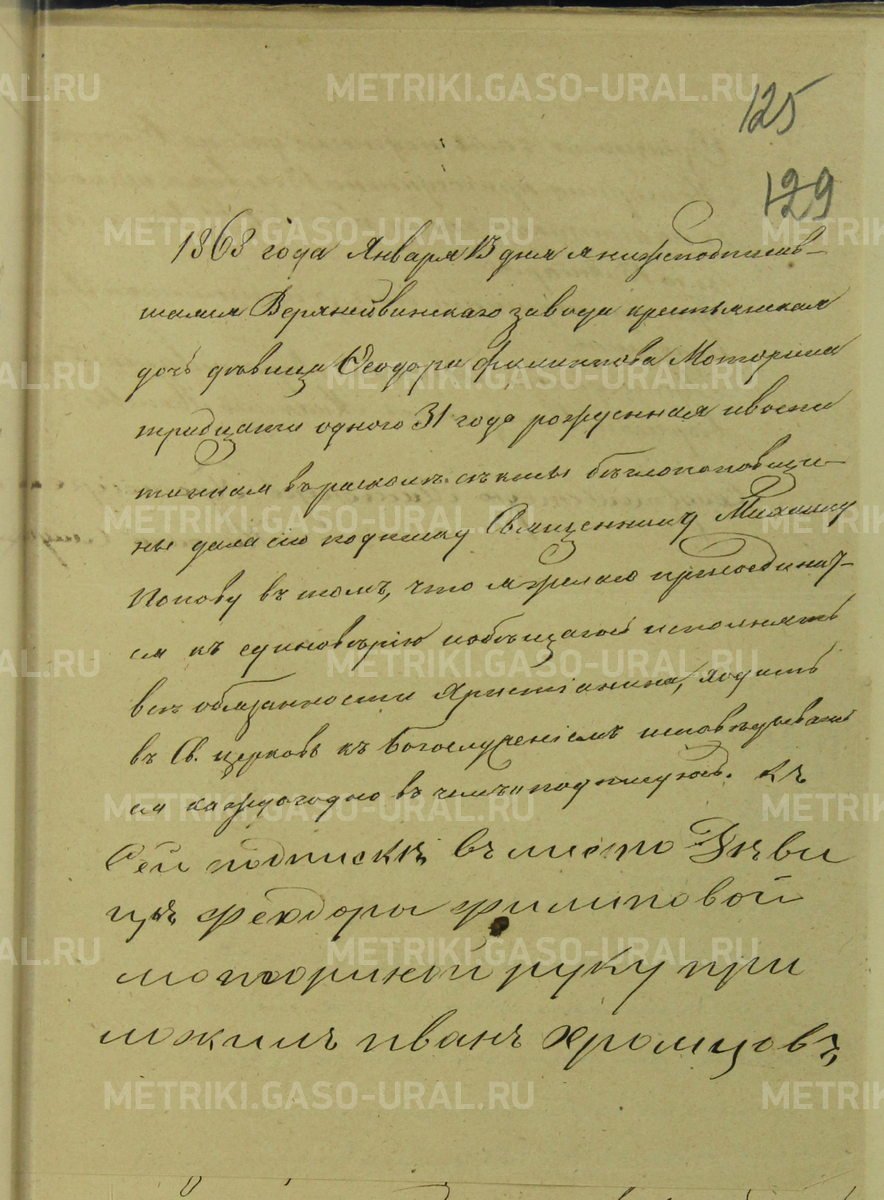 125
129
1868 года Января 13 дня я нижеподписав-
шаяся Верхнейвинскаго завода крестьянская
дочь дѣвица Ѳеодора Филиппова Моторина
тридцати одного 31 года рожденная и воспи
танная въ расколѣ секты бѣглопоповщи-
ны дала сію подписку Священнику Михаилу
Попову въ томъ, что я желаю присоединит-
ся къ единовѣрію и обѣщаюсь исполнять
всѣ обязанности Христіанина, ходить
въ Св. церковь къ Богослуженіямъ исповѣдывать
ся каждогодно въ чемъ и подписуюсь. Къ
Сей подпискѣ въ место Дѣви
цы Феѡдоры Филиповой
моториной руку при
ложилъ иванъ Хромцовъ,
METRIKI.GASO-URAL.RU